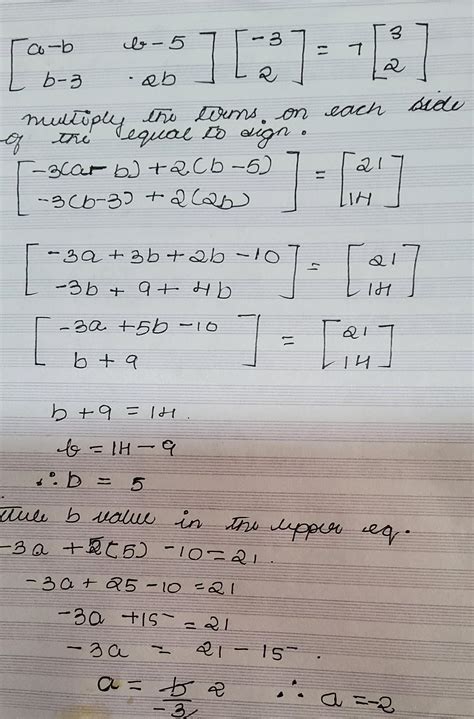 [a-b b-5] [-3] = 7 [3]
[b-3 2b] [2] [2]
multiply the terms on each side
of the equal to sign.
[-3(a-b) + 2(b-5)] = [21]
[-3(b-3) + 2(2b)] [14]
[-3a + 3b + 2b - 10] = [21]
[-3b + 9 + 4b] [14]
[-3a + 5b - 10] = [21]
[b + 9] [14]
b + 9 = 14.
b = 14 - 9
∴ b = 5
b value in the upper eq.
-3a + 5(5) - 10 = 21.
-3a + 25 - 10 = 21
-3a + 15 = 21
-3a = 21 - 15.
a = 6/-3 2 ∴ a = -2